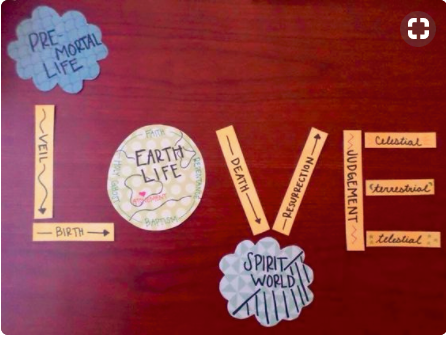 PRE-
MORTAL
LIFE
VEIL
BIRTH
EARTH
LIFE
Faith
Repentance
Baptism
DEATH
RESURRECTION
SPIRIT
WORLD
JUDGEMENT
Celestial
Terrestrial
Telestial